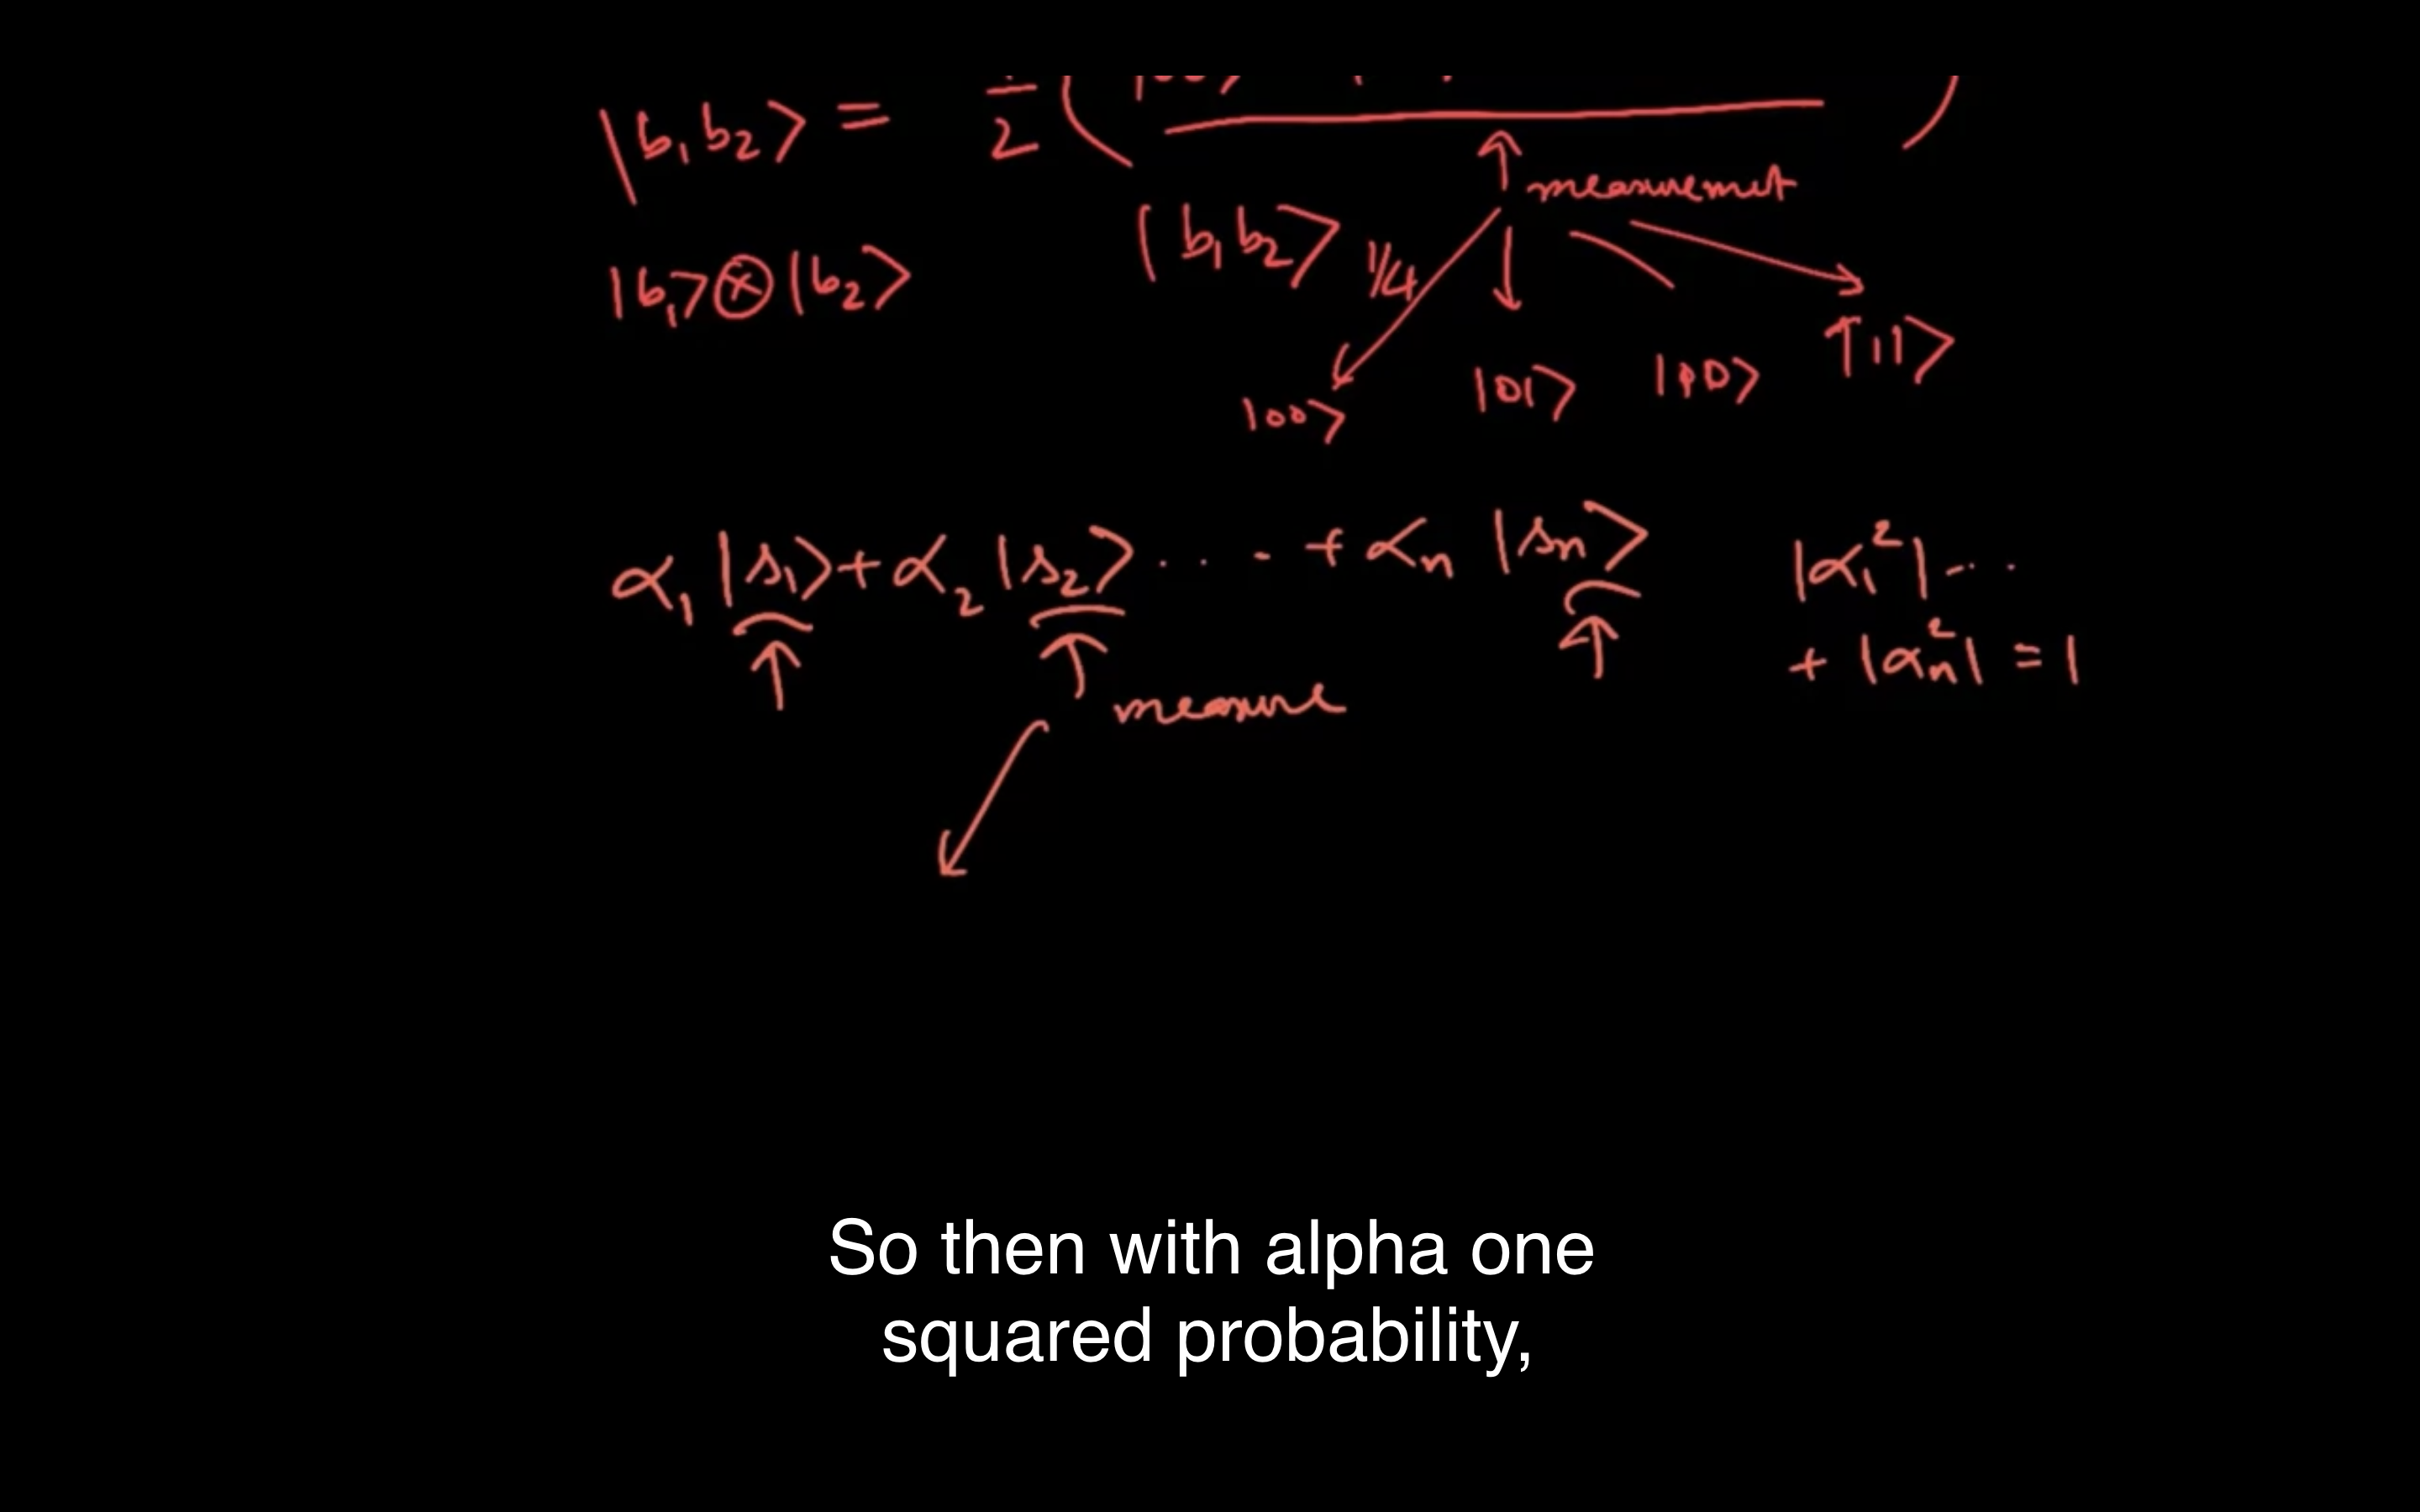 |b₁b₂⟩ = 1/2 (
measuremet
|b₁⟩⊗|b₂⟩
|b₁b₂⟩ 1/4
|00⟩ |01⟩ |10⟩ |11⟩
α₁|s₁⟩+α₂|s₂⟩... + αₙ|sₙ⟩ |α₁²|...
+ |αₙ²| = 1
measure
So then with alpha one
squared probability,